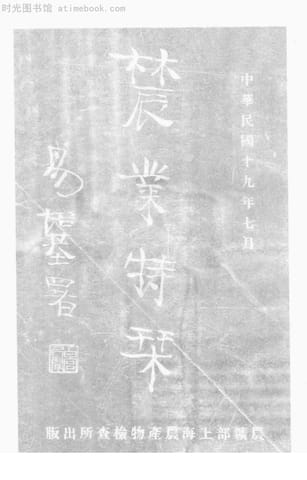 时光图书馆 atimebook.com
中華民國十九年七月
農業特栞
易培基署
農鑛部上海農產物檢查所出版